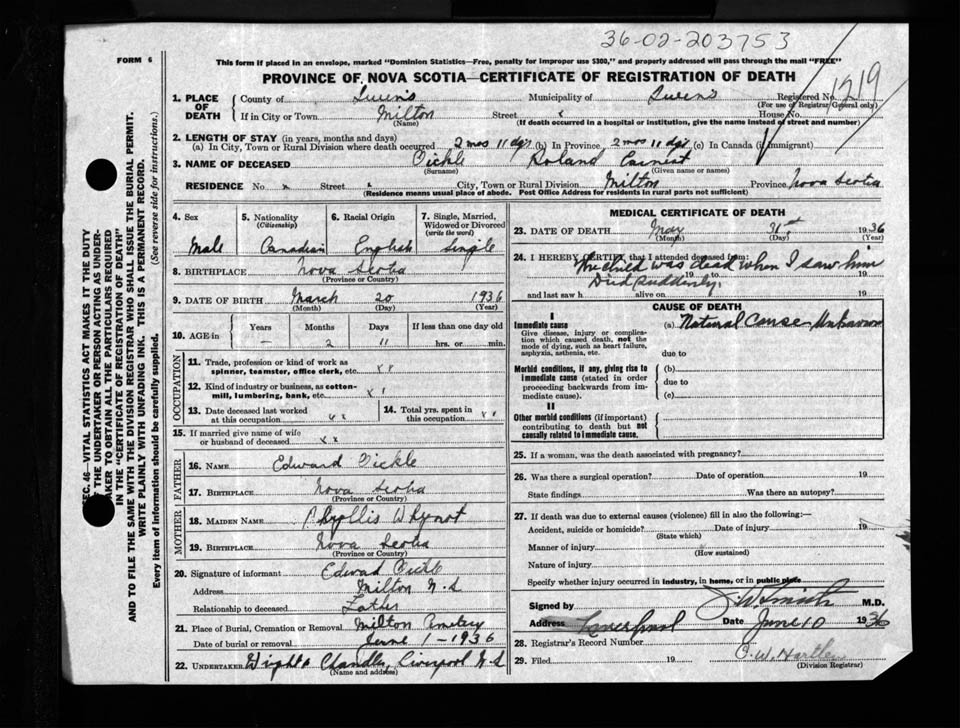 36-02-203753
FORM 6
This form if placed in an envelope, marked "Dominion Statistics—Free, penalty for improper use $300," and properly addressed will pass through the mail "FREE"
PROVINCE OF NOVA SCOTIA—CERTIFICATE OF REGISTRATION OF DEATH
1. PLACE OF DEATH County of Queens Municipality of Queens Registered No. 1219
(For use of Registrar General only)
If in City or Town Milton Street x House No.
(Name) (If death occurred in a hospital or institution, give the name instead of street and number)
2. LENGTH OF STAY (in years, months and days)
(a) In City, Town or Rural Division where death occurred 2 mos 11 dys (b) In Province 2 mos 11 dys (c) In Canada (if immigrant)
3. NAME OF DECEASED Oickle Roland Earnest
(Surname) (Given name or names)
RESIDENCE No. x Street x City, Town or Rural Division Milton Province Nova Scotia
(Residence means usual place of abode. Post Office Address for residents in rural parts not sufficient)
4. Sex 5. Nationality (Citizenship) 6. Racial Origin 7. Single, Married, Widowed or Divorced (write the word)
Male Canadian English Single
8. BIRTHPLACE Nova Scotia
(Province or Country)
9. DATE OF BIRTH March 20 1936
(Month) (Day) (Year)
10. AGE in Years Months Days If less than one day old
— 2 11 hrs. or min.
OCCUPATION
11. Trade, profession or kind of work as spinner, teamster, office clerk, etc. x x
12. Kind of industry or business, as cotton-mill, lumbering, bank, etc. x x
13. Date deceased last worked at this occupation x x 14. Total yrs. spent in this occupation x x
15. If married give name of wife or husband of deceased x x
FATHER
16. NAME Edward Oickle
17. BIRTHPLACE Nova Scotia
(Province or Country)
MOTHER
18. MAIDEN NAME Phyllis Whynot
19. BIRTHPLACE Nova Scotia
(Province or Country)
20. Signature of informant Edward Oickle
Address Milton N.S
Relationship to deceased Father
21. Place of Burial, Cremation or Removal Milton Cemetery
Date of burial or removal June 1-1936
22. UNDERTAKER Chandler, Liverpool N.S
(Name and address)
MEDICAL CERTIFICATE OF DEATH
23. DATE OF DEATH May 31st 1936
(Month) (Day) (Year)
24. I HEREBY CERTIFY that I attended deceased from:
The child was dead when I saw him
19 to 19
Died suddenly.
and last saw h alive on 19
CAUSE OF DEATH
I
Immediate cause (a) Natural Cause-Unknown
Give disease, injury or complication which caused death, not the mode of dying, such as heart failure, asphyxia, asthenia, etc.
due to
Morbid conditions, if any, giving rise to immediate cause (stated in order proceeding backwards from immediate cause).
(b)
due to
(c)
II
Other morbid conditions (if important) contributing to death but not causally related to immediate cause.
25. If a woman, was the death associated with pregnancy?
26. Was there a surgical operation? Date of operation 19
State findings Was there an autopsy?
27. If death was due to external causes (violence) fill in also the following:—
Accident, suicide or homicide? Date of injury 19
(State which)
Manner of injury
(How sustained)
Nature of injury
Specify whether injury occurred in industry, in home, or in public place
Signed by J. W. Smith M.D.
Address Liverpool Date June 10 1936
28. Registrar's Record Number
29. Filed 19 C. W. Hartlen
(Division Registrar)
SEC. 46—VITAL STATISTICS ACT MAKES IT THE DUTY
OF THE UNDERTAKER OR PERSON ACTING AS UNDER-
TAKER TO OBTAIN ALL THE PARTICULARS REQUIRED
IN THE "CERTIFICATE OF REGISTRATION OF DEATH"
AND TO FILE THE SAME WITH THE DIVISION REGISTRAR WHO SHALL ISSUE THE BURIAL PERMIT.
WRITE PLAINLY WITH UNFADING INK. THIS IS A PERMANENT RECORD.
Every item of information should be carefully supplied. (See reverse side for instructions.)